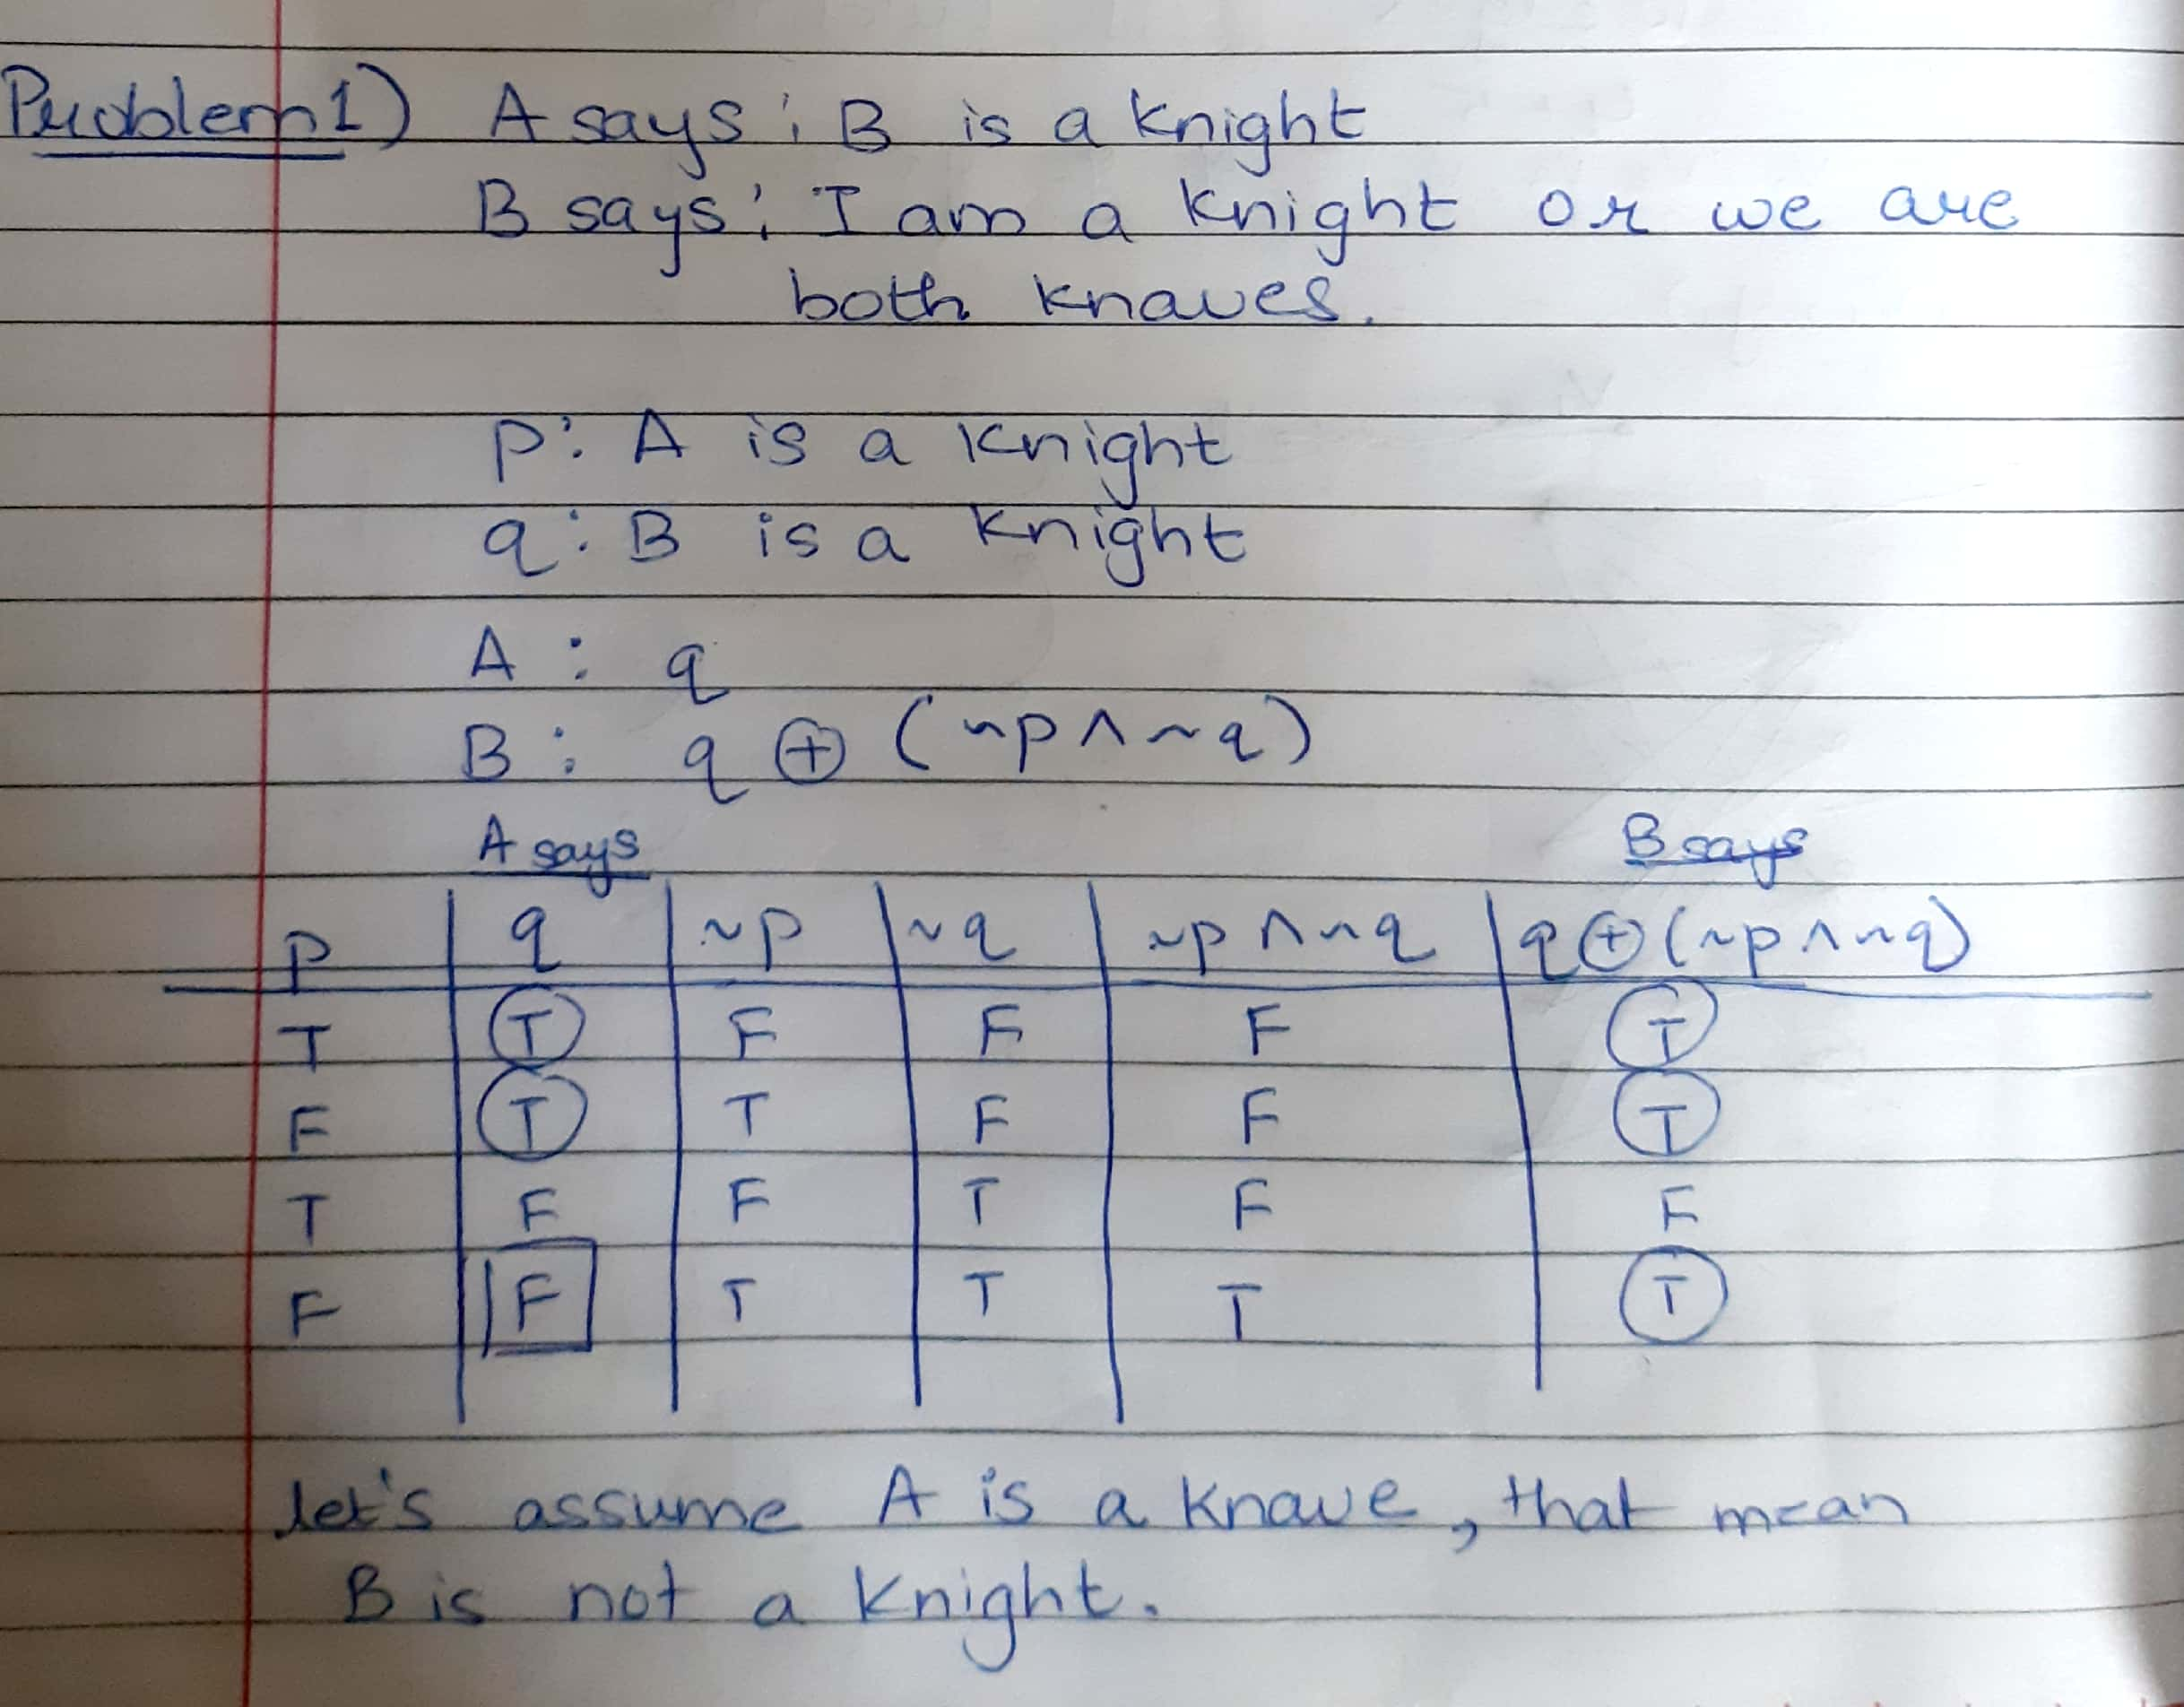 Problem 1) A says : B is a knight
B says : I am a knight or we are
both knaves.
p : A is a knight
q : B is a knight
A : q
B : q ⊕ (~p ∧ ~q)
A says B says
p q ~p ~q ~p ∧ ~q q ⊕ (~p ∧ ~q)
T T F F F T
F T T F F T
T F F T F F
F F T T T T
let's assume A is a knave, that mean
B is not a knight.